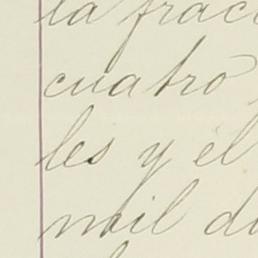 la frac
cuatro
les y el
mil d